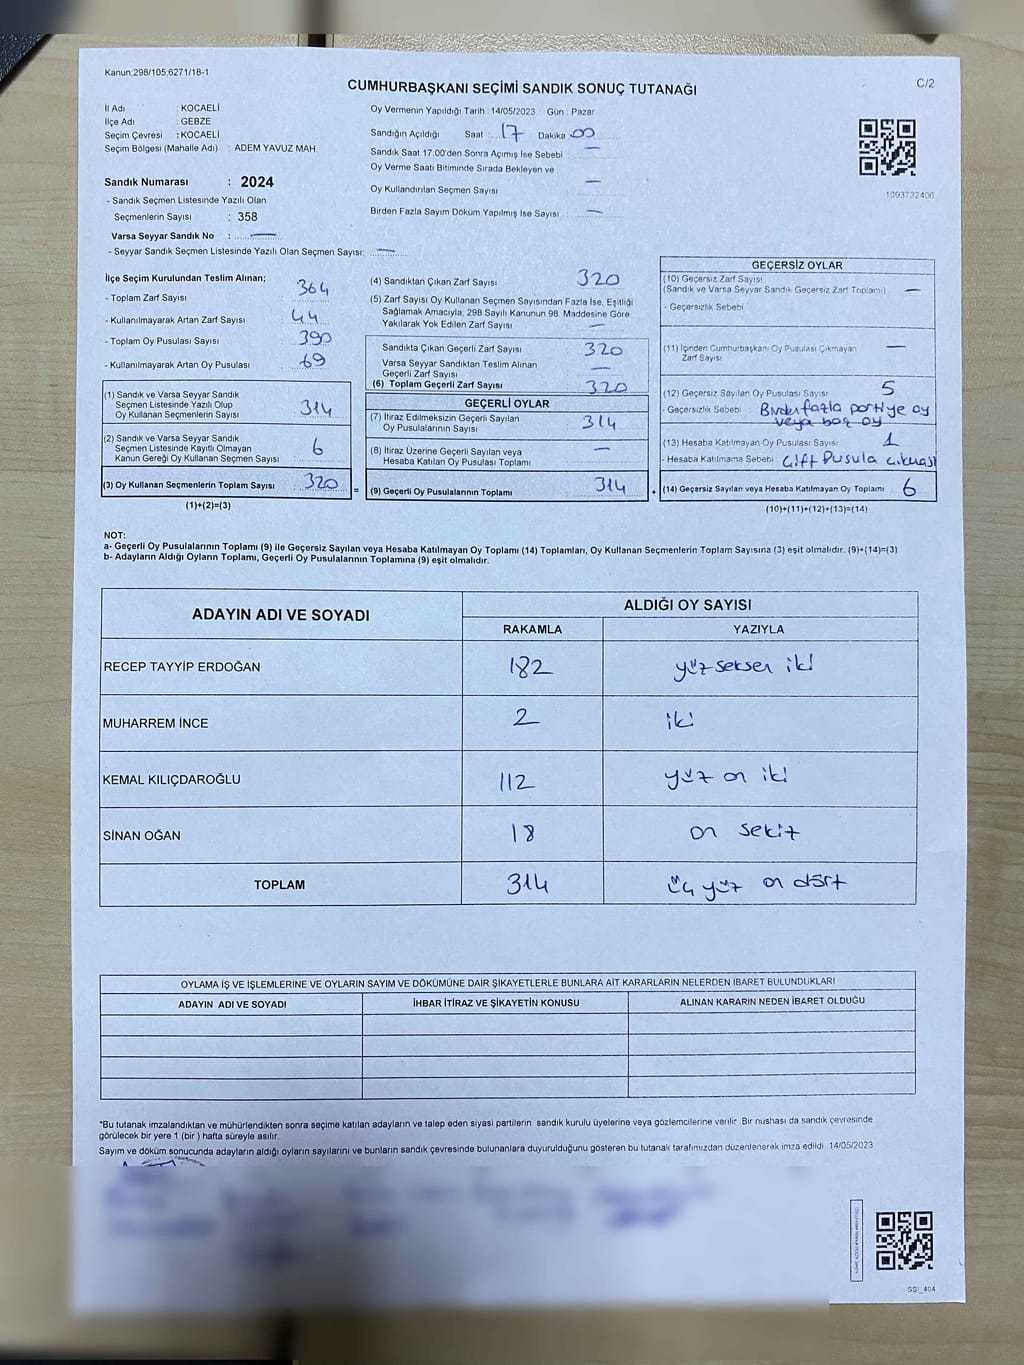 Kanun:298/105,6271/18-1
C/2
CUMHURBAŞKANI SEÇİMİ SANDIK SONUÇ TUTANAĞI
İl Adı : KOCAELİ
İlçe Adı : GEBZE
Seçim Çevresi : KOCAELİ
Seçim Bölgesi (Mahalle Adı) : ADEM YAVUZ MAH.
Sandık Numarası : 2024
- Sandık Seçmen Listesinde Yazılı Olan
Seçmenlerin Sayısı : 358
Varsa Seyyar Sandık No : —
- Seyyar Sandık Seçmen Listesinde Yazılı Olan Seçmen Sayısı: —
Oy Vermenin Yapıldığı Tarih : 14/05/2023 Gün : Pazar
Sandığın Açıldığı Saat : 17 Dakika 00
Sandık Saat 17:00'den Sonra Açımış İse Sebebi : —
Oy Verme Saati Bitiminde Sırada Bekleyen ve
Oy Kullandırılan Seçmen Sayısı —
Birden Fazla Sayım Döküm Yapılmış İse Sayısı : —
1093732406
İlçe Seçim Kurulundan Teslim Alınan;
- Toplam Zarf Sayısı : 364
- Kullanılmayarak Artan Zarf Sayısı : 44
- Toplam Oy Pusulası Sayısı : 390
- Kullanılmayarak Artan Oy Pusulası : 69
(1) Sandık ve Varsa Seyyar Sandık
Seçmen Listesinde Yazılı Olup
Oy Kullanan Seçmenlerin Sayısı : 314
(2) Sandık ve Varsa Seyyar Sandık
Seçmen Listesinde Kayıtlı Olmayan
Kanun Gereği Oy Kullanan Seçmen Sayısı : 6
(3) Oy Kullanan Seçmenlerin Toplam Sayısı : 320
(1)+(2)=(3)
=
(4) Sandıktan Çıkan Zarf Sayısı : 320
(5) Zarf Sayısı Oy Kullanan Seçmen Sayısından Fazla İse, Eşitliği
Sağlamak Amacıyla, 298 Sayılı Kanunun 98. Maddesine Göre
Yakılarak Yok Edilen Zarf Sayısı : —
Sandıkta Çıkan Geçerli Zarf Sayısı : 320
Varsa Seyyar Sandıktan Teslim Alınan
Geçerli Zarf Sayısı : —
(6) Toplam Geçerli Zarf Sayısı : 320
GEÇERLİ OYLAR
(7) İtiraz Edilmeksizin Geçerli Sayılan
Oy Pusulalarının Sayısı : 314
(8) İtiraz Üzerine Geçerli Sayılan veya
Hesaba Katılan Oy Pusulası Toplamı : —
(9) Geçerli Oy Pusulalarının Toplamı : 314
+
GEÇERSİZ OYLAR
(10) Geçersiz Zarf Sayısı
(Sandık ve Varsa Seyyar Sandık Geçersiz Zarf Toplamı) : —
- Geçersizlik Sebebi :
(11) İçinden Cumhurbaşkanı Oy Pusulası Çıkmayan
Zarf Sayısı : —
(12) Geçersiz Sayılan Oy Pusulası Sayısı : 5
- Geçersizlik Sebebi : Birden fazla partiye oy
veya boş oy
(13) Hesaba Katılmayan Oy Pusulası Sayısı : 1
- Hesaba Katılmama Sebebi : Çift Pusula çıkması
(14) Geçersiz Sayılan veya Hesaba Katılmayan Oy Toplamı : 6
(10)+(11)+(12)+(13)=(14)
NOT:
a- Geçerli Oy Pusulalarının Toplamı (9) ile Geçersiz Sayılan veya Hesaba Katılmayan Oy Toplamı (14) Toplamları, Oy Kullanan Seçmenlerin Toplam Sayısına (3) eşit olmalıdır. (9)+(14)=(3)
b- Adayların Aldığı Oyların Toplamı, Geçerli Oy Pusulalarının Toplamına (9) eşit olmalıdır.
ADAYIN ADI VE SOYADI
ALDIĞI OY SAYISI
RAKAMLA YAZIYLA
RECEP TAYYİP ERDOĞAN 182 yüz seksen iki
MUHARREM İNCE 2 iki
KEMAL KILIÇDAROĞLU 112 yüz on iki
SİNAN OĞAN 18 on sekiz
TOPLAM 314 üç yüz on dört
OYLAMA İŞ VE İŞLEMLERİNE VE OYLARIN SAYIM VE DÖKÜMÜNE DAİR ŞİKAYETLERLE BUNLARA AİT KARARLARIN NELERDEN İBARET BULUNDUKLARI
ADAYIN ADI VE SOYADI İHBAR İTİRAZ VE ŞİKAYETİN KONUSU ALINAN KARARIN NEDEN İBARET OLDUĞU
*Bu tutanak imzalandıktan ve mühürlendikten sonra seçime katılan adayların ve talep eden siyasi partilerin sandık kurulu üyelerine veya gözlemcilerine verilir. Bir nushası da sandık çevresinde
görülecek bir yere 1 (bir ) hafta süreyle asılır.
Sayım ve döküm sonucunda adayların aldığı oyların sayılarını ve bunların sandık çevresinde bulunanlara duyurulduğunu gösteren bu tutanak tarafımızdan düzenlenerek imza edildi. 14/05/2023
SSİ_404